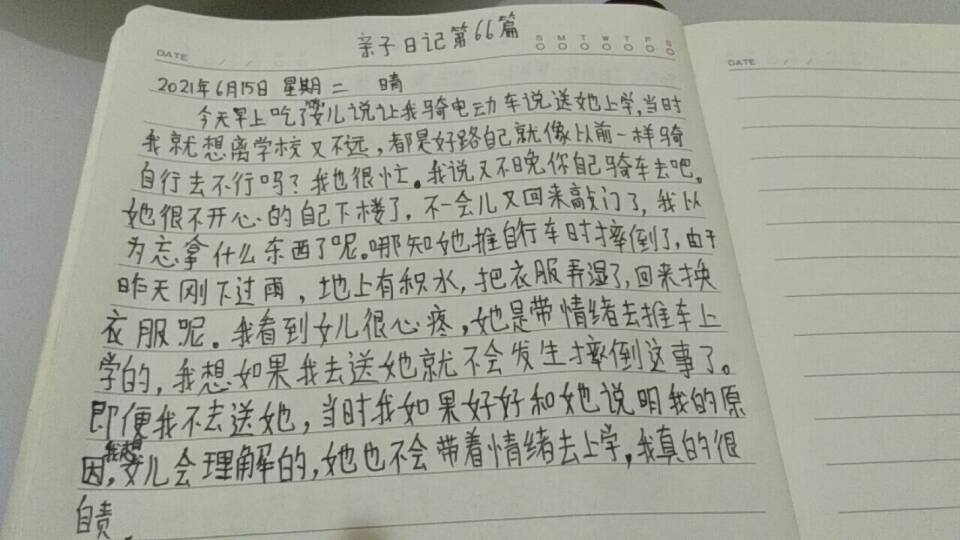 亲子日记第66篇
DATE / /
S M T W T F S
2021年6月15日 星期二 晴
今天早上吃了饭女儿说让我骑电动车说送她上学,当时
我就想离学校又不远,都是好路自己就像以前一样骑
自行去不行吗?我也很忙。我说又不晚你自己骑车去吧。
她很不开心的自己下楼了,不一会儿又回来敲门了,我以
为忘拿什么东西了呢。哪知她推自行车时摔倒了,由于
昨天刚下过雨,地上有积水,把衣服弄湿了,回来换
衣服呢。我看到女儿很心疼,她是带情绪去推车上
学的,我想如果我去送她就不会发生摔倒这事了。
即便我不去送她,当时我如果好好和她说明我的原
因,我想女儿会理解的,她也不会带着情绪去上学,我真的很
自责.
DATE / /